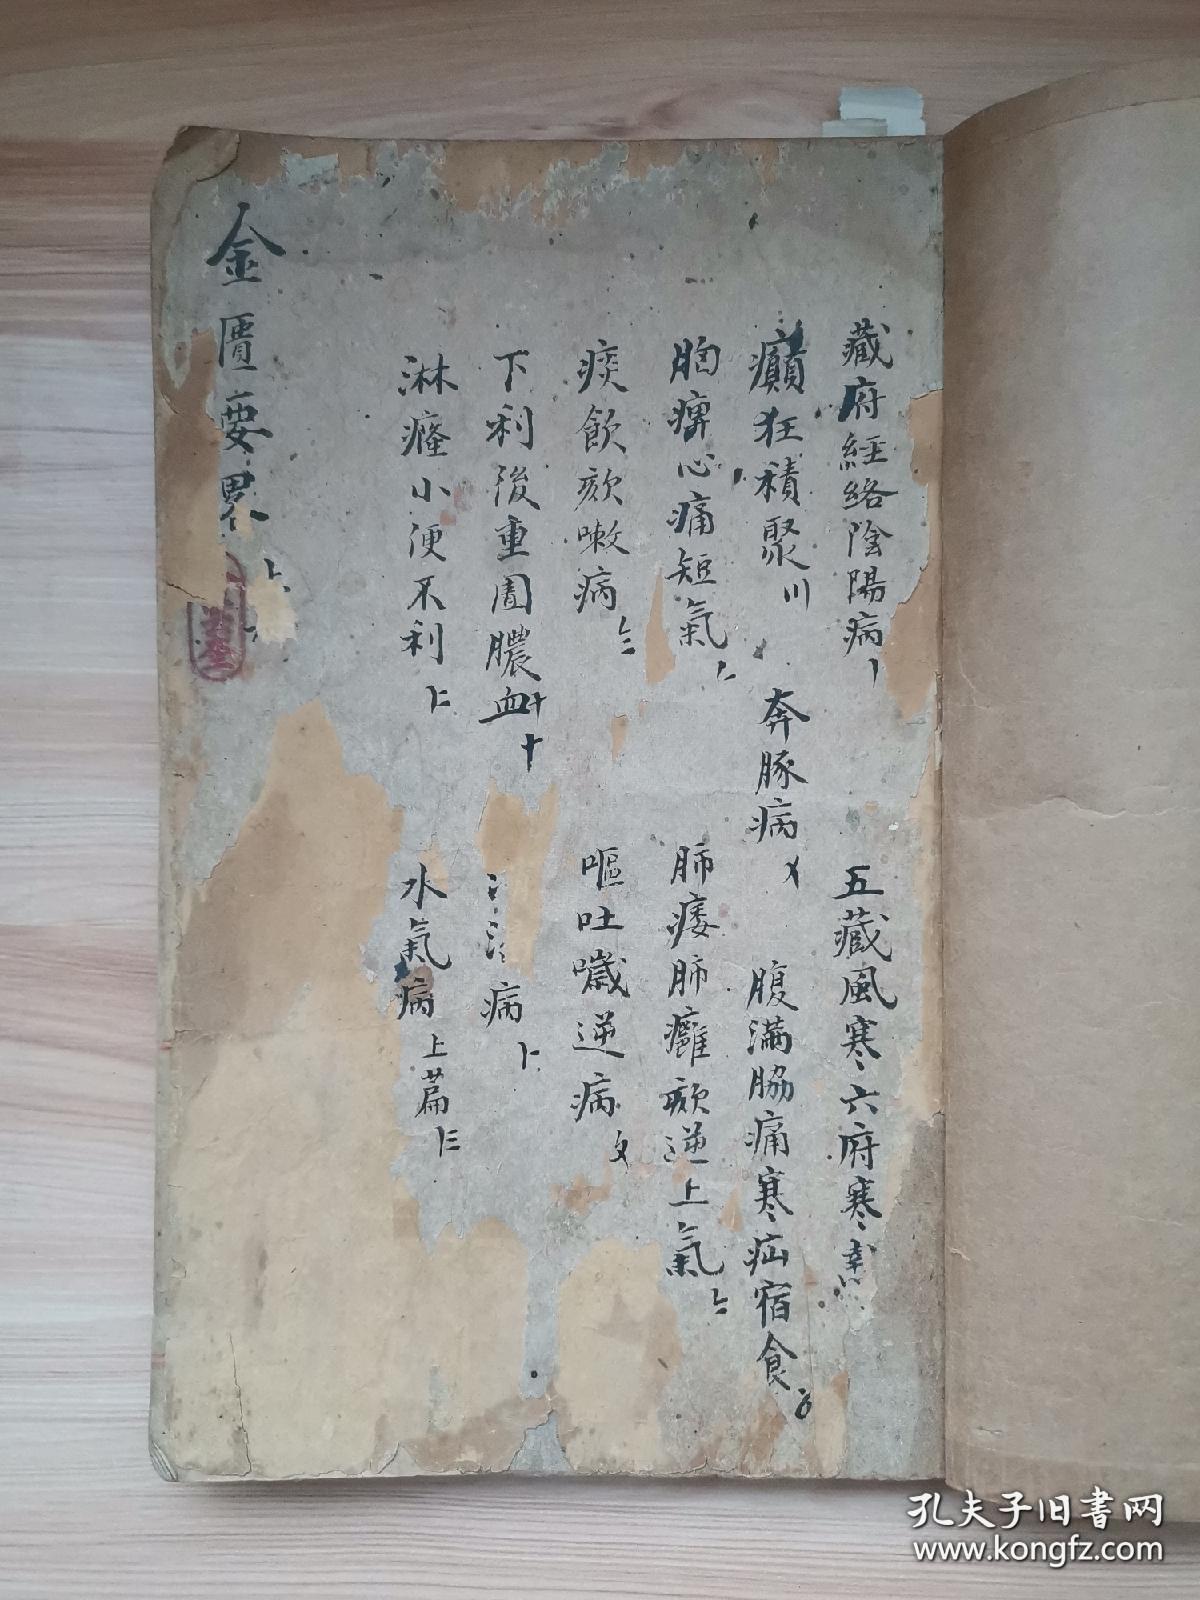 藏府經絡陰陽病〡 五藏風寒六府寒
癲狂積聚〢 奔豚病〤 腹滿脇痛寒疝宿食〥
胸痹心痛短氣〦 肺痿肺癰欬逆上氣〧
痰飲欬嗽病〨 嘔吐噦逆病〩
下利後重圊膿血十 病
淋癃小便不利 水氣病上篇
金匱要畧上
孔夫子旧书网
www.kongfz.com